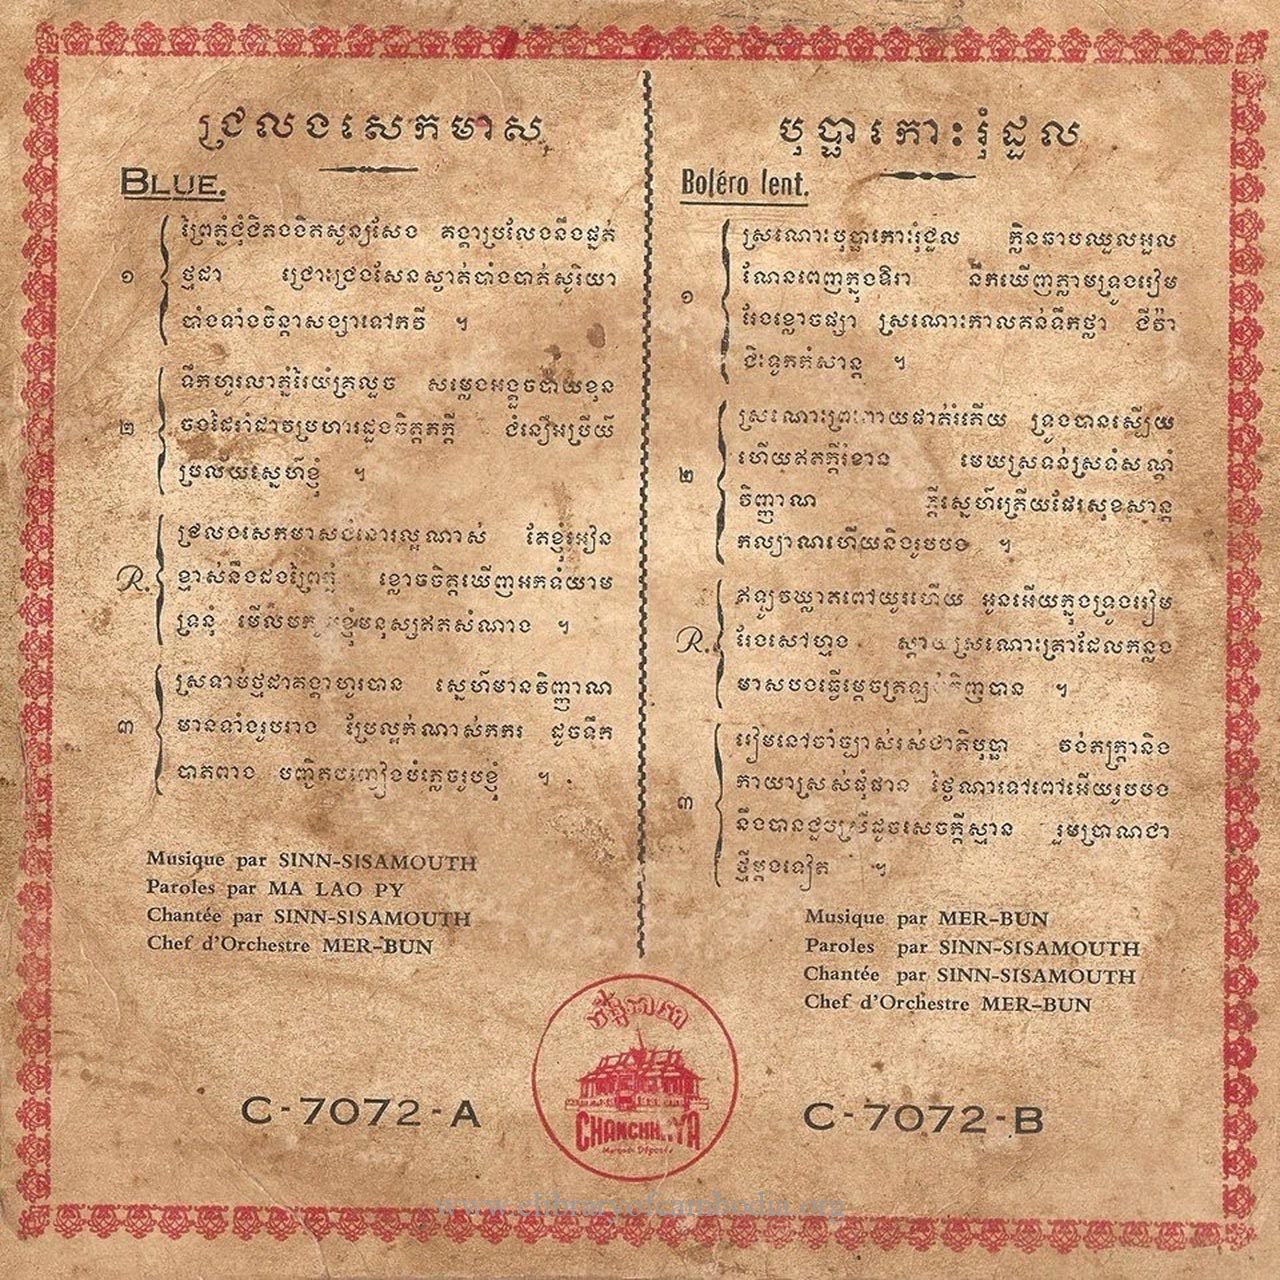 ជ្រលងសេកមាស
BLUE.
ព្រៃភ្នំជុំជិតងងិតសូន្យសែង គង្គាប្រលែងនឹងផ្ទត់
១
ថ្មដា ជ្រោះជ្រងសែនស្ងាត់បាំងបាត់សូរិយា
បាំងទាំងចិន្តាសង្សាទៅកវី ។
ទឹកហូរលាភ្នំរៃយំគ្រលួច សម្លេងអង្គួច
២
ចងដៃរាំដាវប្រហារដួងចិត្តភក្តី
ប្រល័យស្នេហ៍ខ្ញុំ ។
ជ្រលងសេកមាស ល្អណាស់ តែខ្ញុំអៀន
R.
ខ្មាស់នឹងដងព្រៃភ្នំ ខ្លោចចិត្តឃើញអកទំយាម
ទ្រនុំ ខ្ញុំមនុស្សឥតសំណាង ។
ស្រទាប់ថ្មដាគង្គាហូរបាន ស្នេហ៍មានវិញ្ញាណ
៣
មានទាំងរូបរាង ប្រែល្អក់ណាស់កករ ដូចទឹក
បាតពាង បញ្ចិតបញ្ឆៀងបំភ្លេចរូបខ្ញុំ ។
Musique par SINN-SISAMOUTH
Paroles par MA LAO PY
Chantée par SINN-SISAMOUTH
Chef d'Orchestre MER-BUN
C-7072-A
បុប្ផាកោះរុំដួល
Boléro lent.
ស្រណោះបុប្ផាកោះរុំដួល ក្លិនឆាបឈួលអួល
១
ណែនពេញក្នុងឱរា នឹកឃើញភ្លាមទ្រូងរៀម
រែងខ្លោចផ្សា ស្រណោះកាលគន់ទឹកថ្លា ជីវ៉ា
ជិះទូកកំសាន្ត ។
ស្រណោះព្រះពាយផាត់រំភើយ ទ្រូងបានស្បើយ
២
ហើយឥតក្តីរំខាន មេឃស្រទន់ស្រទំសណ្តំ
វិញ្ញាណ ក្តីស្នេហ៍ត្រើយផែរសុខសាន្ត
កល្យាណហើយនិងរូបបង ។
ឥឡូវឃ្លាតពៅយូរហើយ អូនអើយក្នុងទ្រូងរៀម
R.
រែងសៅហ្មង ស្តាយស្រណោះគ្រាដែលកន្លង
មាសបងធ្វើម្តេចត្រឡប់វិញបាន ។
រៀមនៅចាំច្បាស់រស់ជាតិបុប្ផា វង់ភក្ត្រានិង
កាយាស្រស់ផុំផាន ថ្ងៃណាទៅពៅអើយរូបបង
៣
នឹងបានជួបស្រីដូចសេចក្តីស្មាន រួមប្រាណជា
ថ្មីម្តងទៀត ។
Musique par MER-BUN
Paroles par SINN-SISAMOUTH
Chantée par SINN-SISAMOUTH
Chef d'Orchestre MER-BUN
C-7072-B
ច័ន្ទឆាយា
CHANCHHAYA
Marques Déposée
www.elibraryofcambodia.org